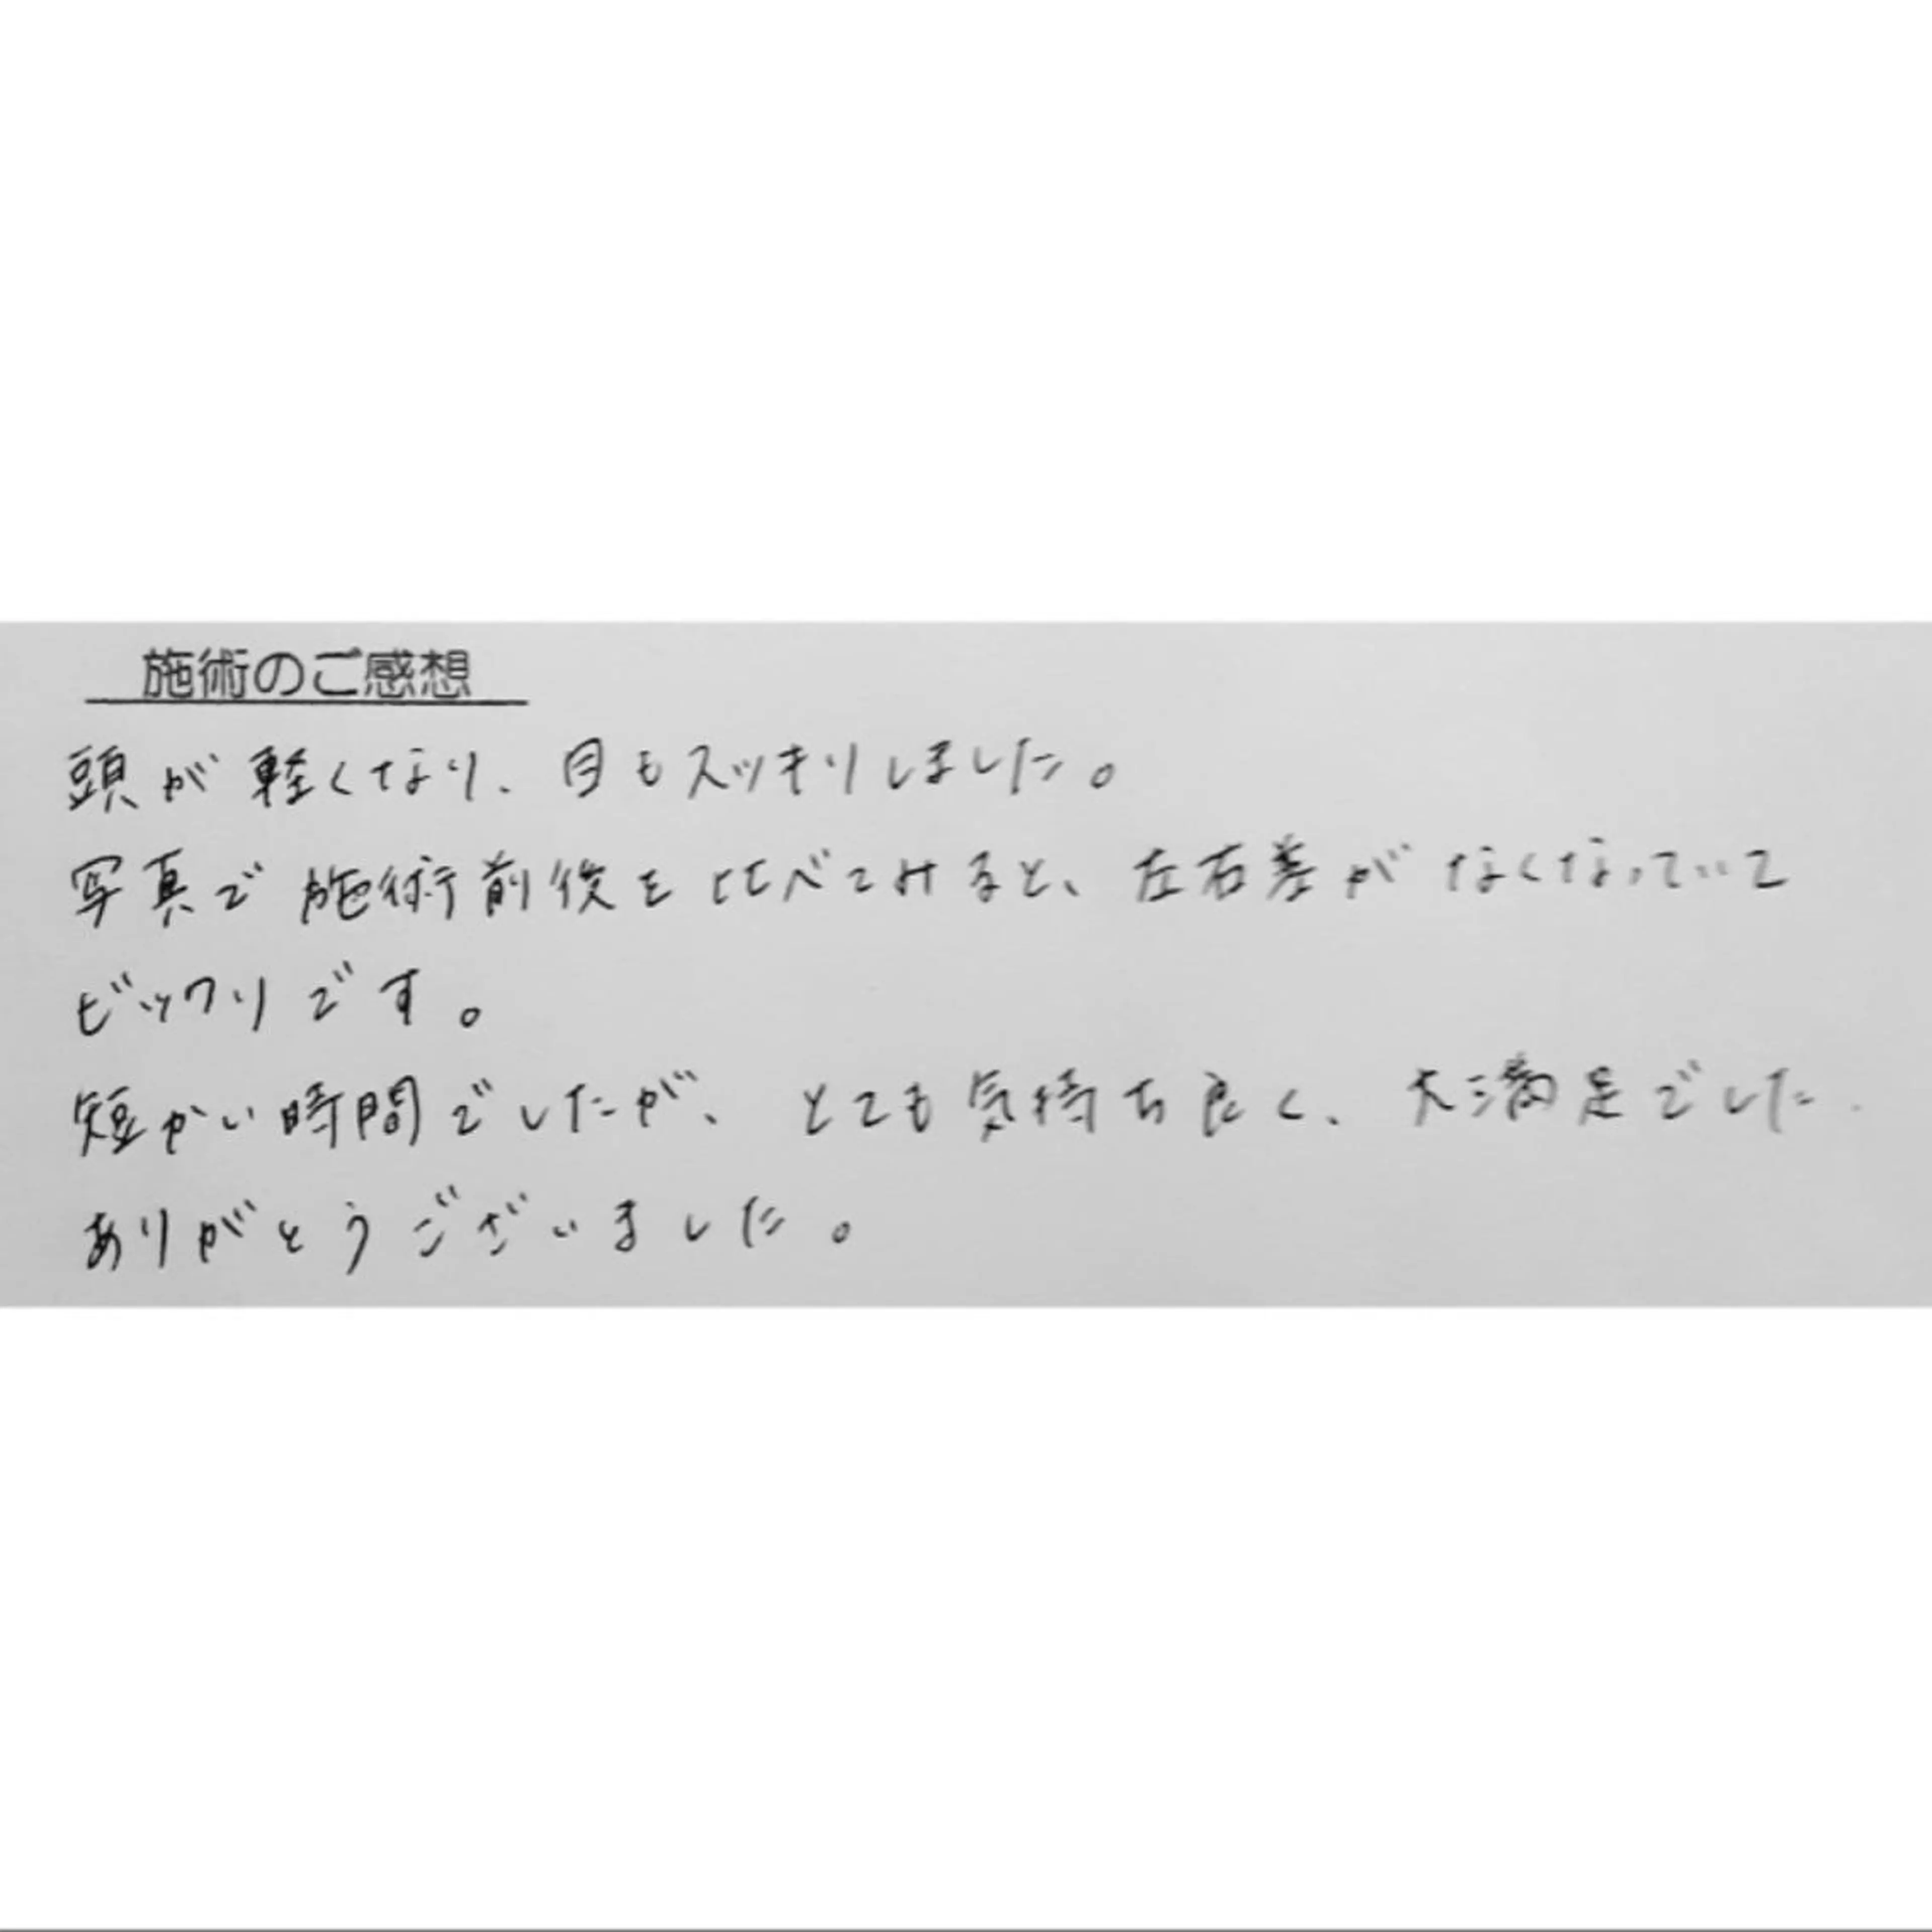 施術のご感想
頭が軽くなり、目もスッキリしました。
写真で施術前後を比べてみると、左右差がなくなっていて
ビックリです。
短かい時間でしたが、とても気持ち良く、大満足でした.
ありがとうございました。